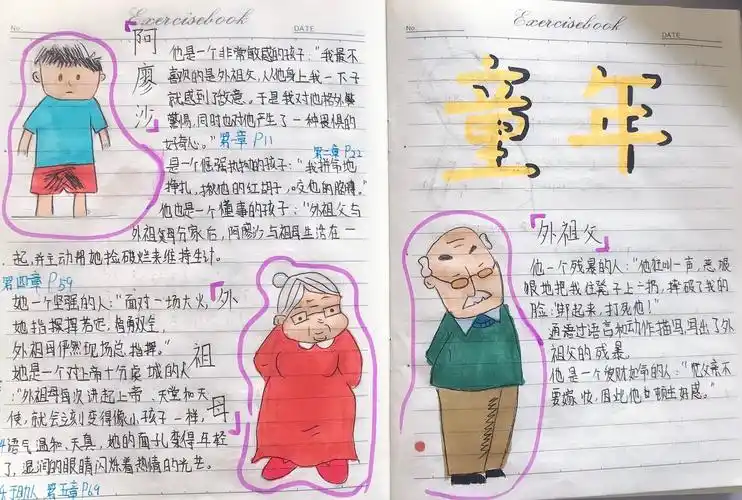 Exercisebook
No.
DATE
「阿廖沙」
他是一个非常敏感的孩子："我最不
喜欢的是外祖父,从他身上我一下子
就感到了敌意。于是我对他格外警
警惕,同时也对他产生了一种畏惧的
好奇心。"第一章 P11
第二章 P22
是一个倔强执拗的孩子："我拼命地
挣扎,揪他的红胡子,咬他的胳膊。"
他也是一个懂事的孩子："外祖父与
外祖父母分家后,阿廖沙与祖母生活在一
起,并主动帮她捡破烂来维持生计。
第四章 P59
「外祖母」
她一个坚强的人："面对一场大火,
她指挥若定,智勇双全,
外祖母俨然现场总指挥。"
她是一个对上帝十分虔诚的人
："外祖母每次讲起上帝、天堂和天
使,就会立刻变得像小孩子一样,
语气温和、天真,她的面孔变得年轻
了,湿润的眼睛闪烁着热情的光芒。
第五章 P69
Exercisebook
No.
DATE
童年
「外祖父」
他一个残暴的人："他狂叫一声,恶狠
狠地把我往凳子上一扔,摔破了我的
脸：'绑起来,打死他!'
通过语言和动作描写,写出了外
祖父的残暴。
他是一个爱财如命的人：